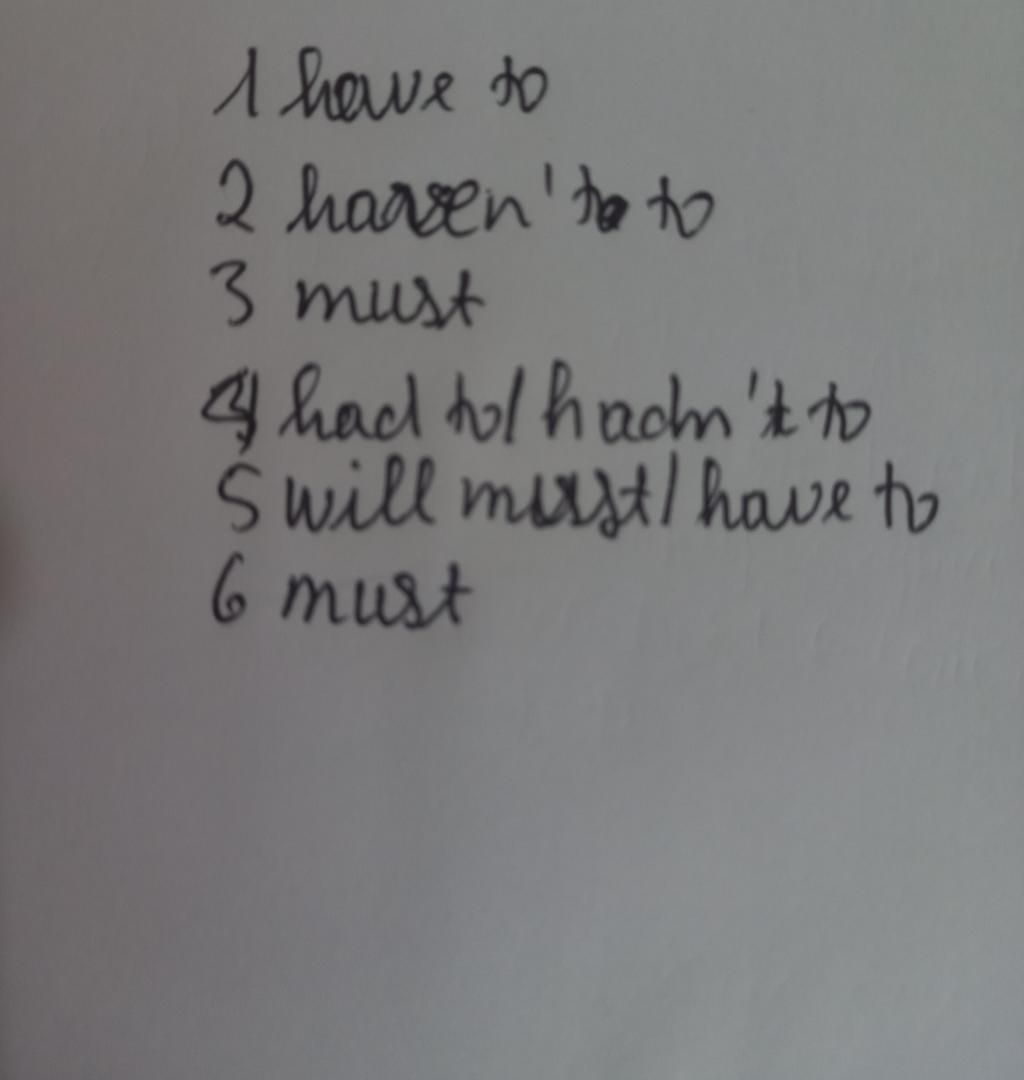 1 have to
2 haven't to
3 must
4 had to/hadn't to
5 will must/have to
6 must